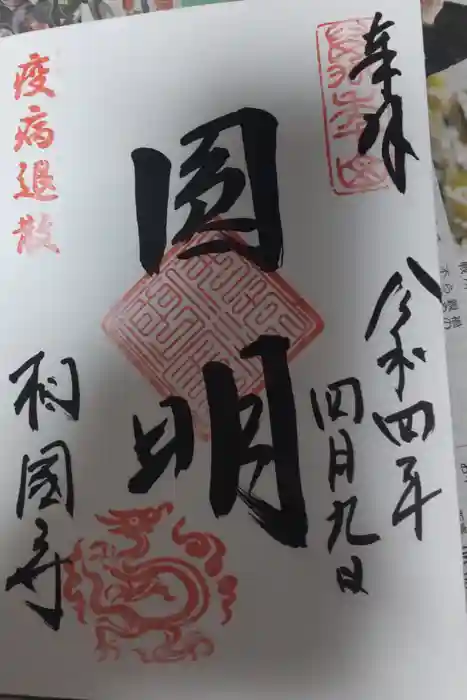 奉拝
令和四年
四月九日
圓明
疫病退散
相國寺